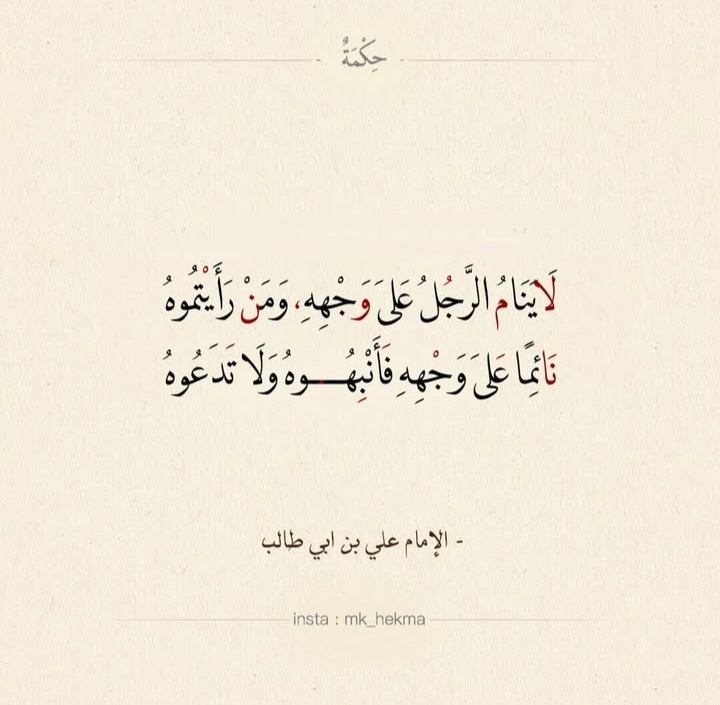 حِكْمَةٌ
لَا يَنَامُ الرَّجُلُ عَلَى وَجْهِهِ، وَمَنْ رَأَيْتُمُوهُ
نَائِمًا عَلَى وَجْهِهِ فَأَنْبِهُـــوهُ وَلَا تَدَعُوهُ
- الإمام علي بن ابي طالب
insta : mk_hekma